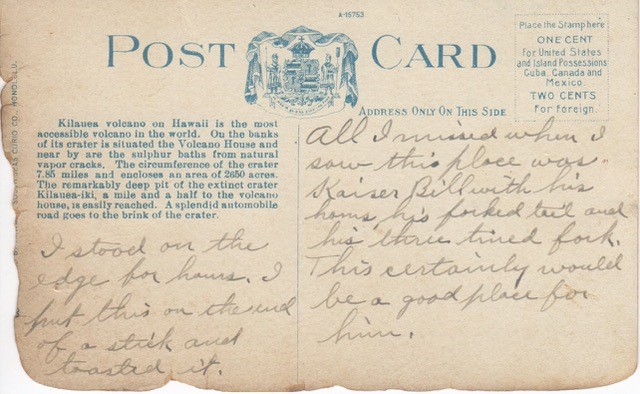 A-15753
POST CARD
Place the Stamp here
ONE CENT
For United States
and Island Possessions
Cuba, Canada and
Mexico.
TWO CENTS
For foreign.
ADDRESS ONLY ON THIS SIDE
CURIO CO., HONOLULU.
Kilauea volcano on Hawaii is the most
accessible volcano in the world. On the banks
of its crater is situated the Volcano House and
near by are the sulphur baths from natural
vapor cracks. The circumference of the crater
7.85 miles and encloses an area of 2650 acres.
The remarkably deep pit of the extinct crater
Kilauea-iki, a mile and a half to the volcano
house, is easily reached. A splendid automobile
road goes to the brink of the crater.
I stood on the
edge for hours. I
put this on the end
of a stick and
toasted it.
All I missed when I
saw this place was
Kaiser Bill with his
horns, his forked tail and
his three tined fork.
This certainly would
be a good place for
him.